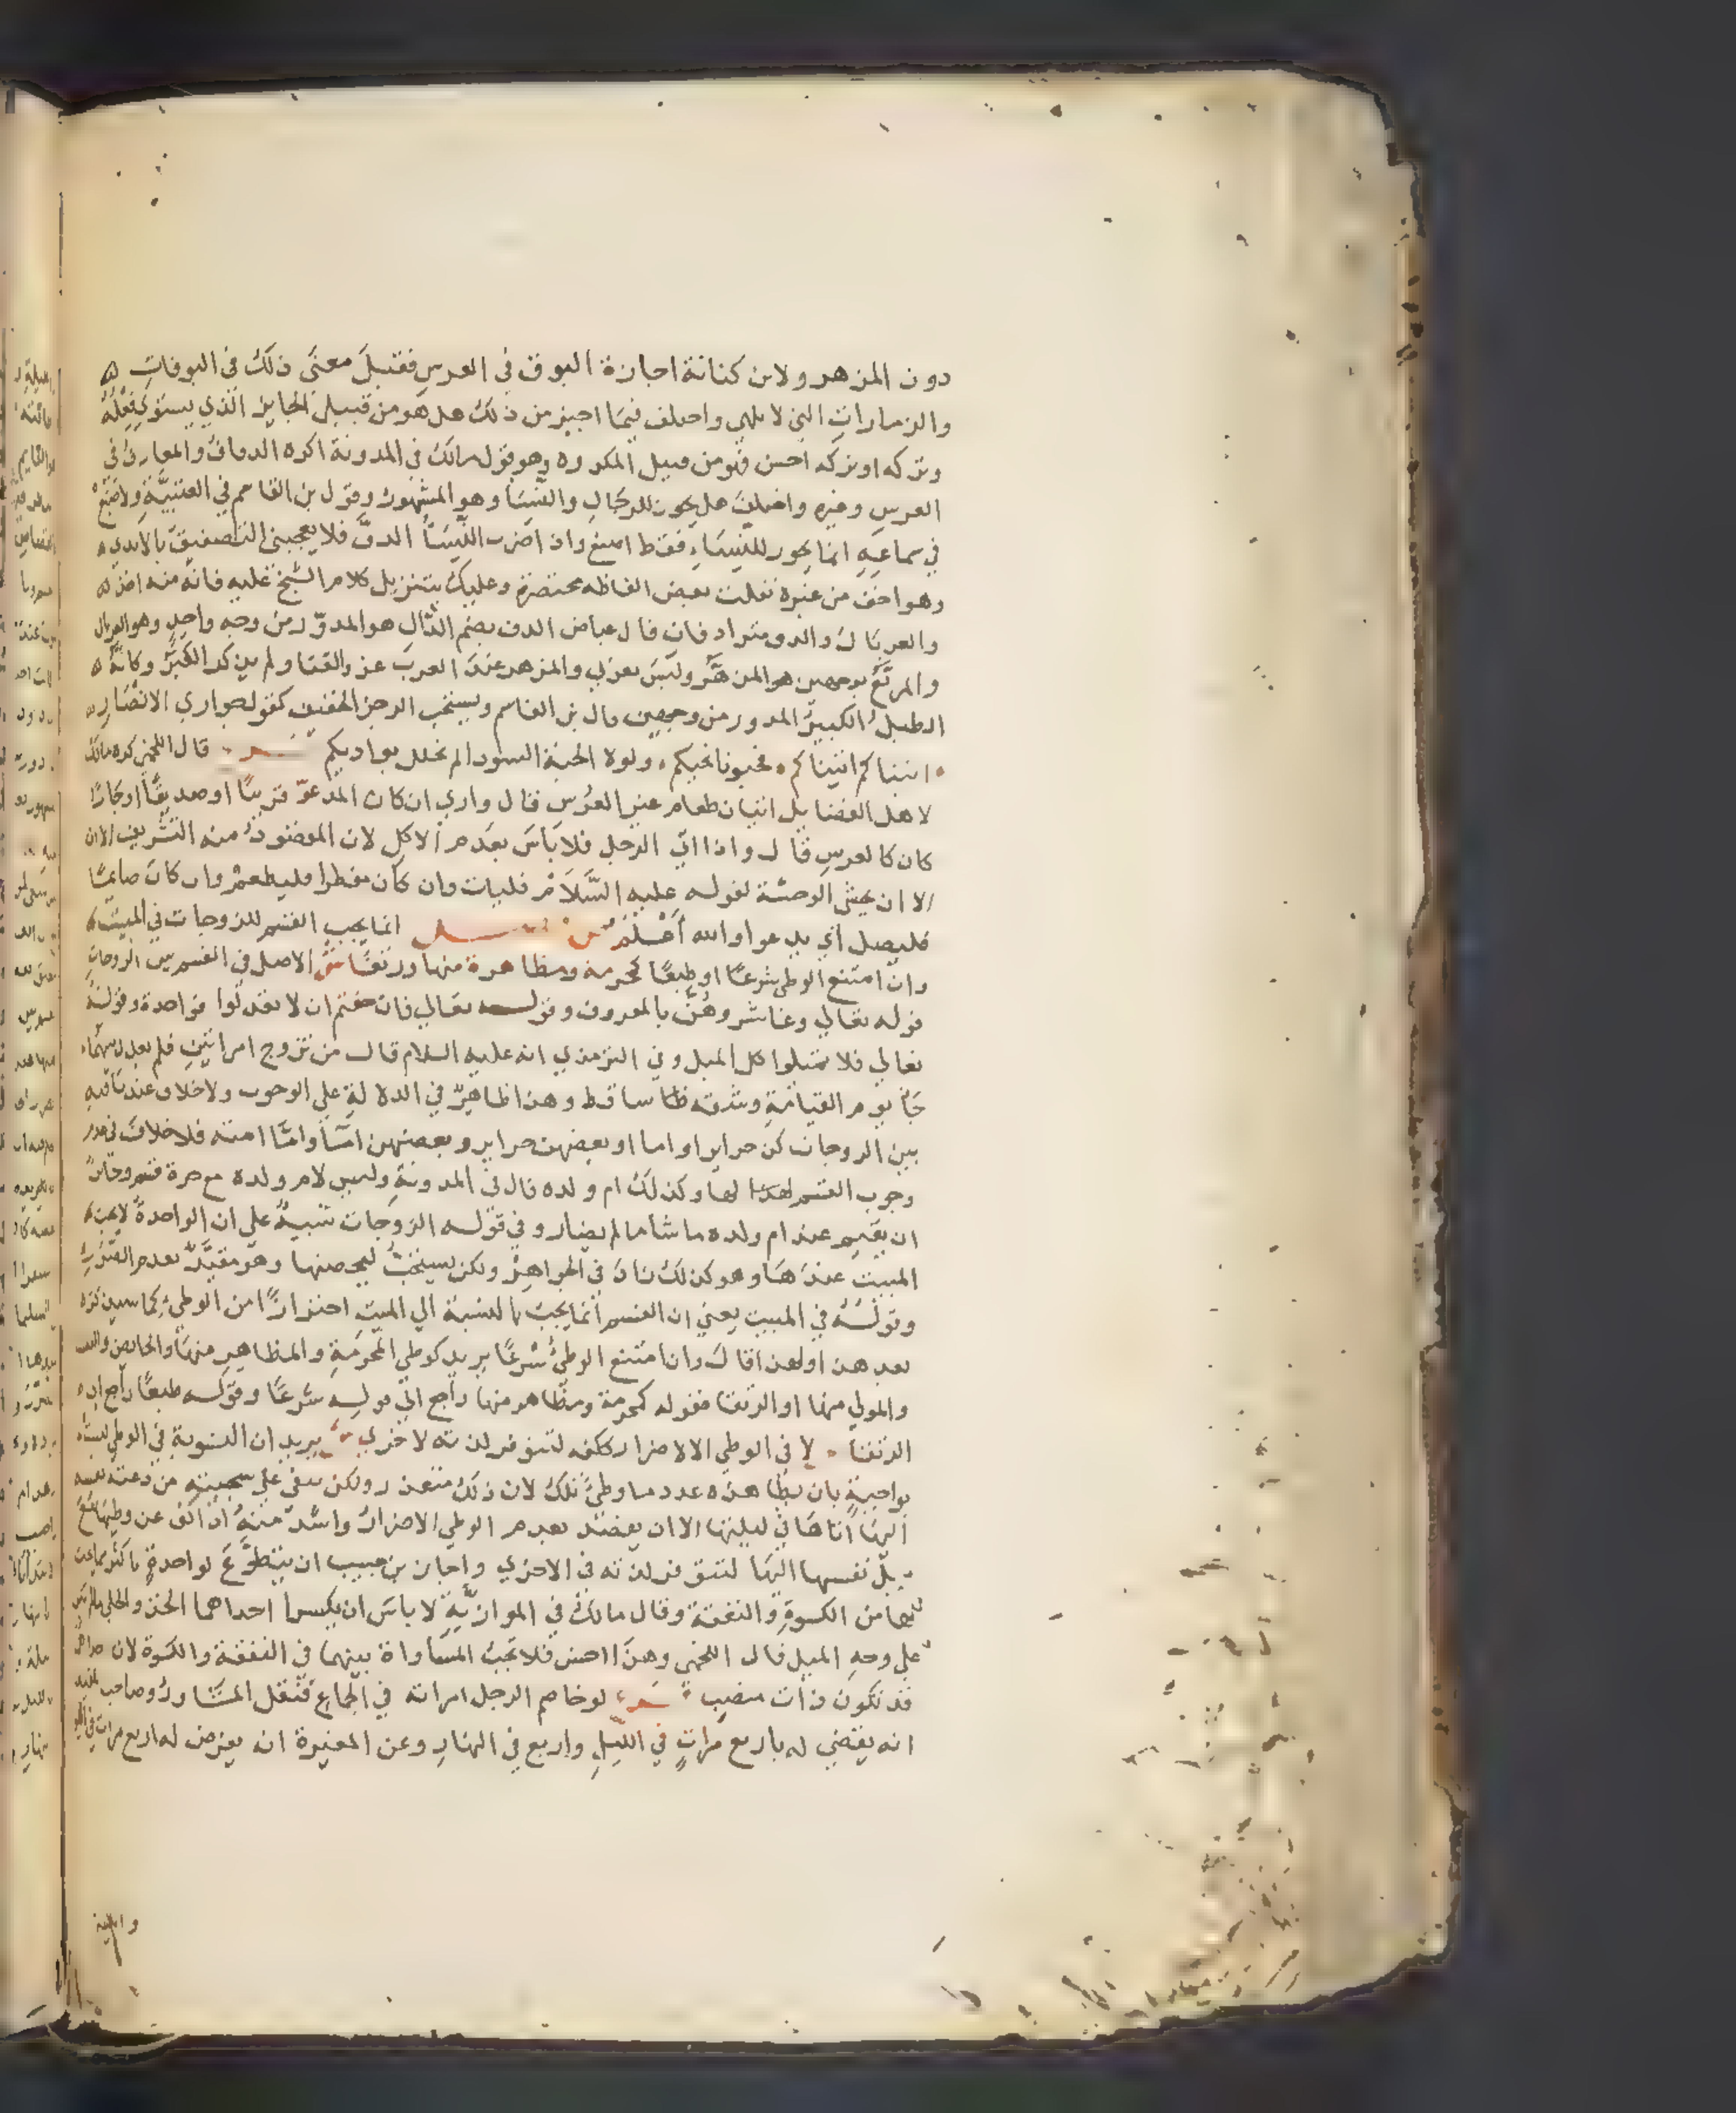 دون المزهر ولابن كنانة اجازة البوق في العرس فقيل معنى ذلك في البوقات
والزمارات التي لا تلهي واختلف فيما اجيز من ذلك هل هو من قبيل الجايز الذي يستوي فعله
وتركه او تركه احسن فهو من قبيل المكروه وهو قول مالك في المدونة اكره الدفاف والمعازف في
العرس وغيره واختلف هل يجوز للرجال والنسا وهو المشهور وقول بن القاسم في العتبية ولاصبغ
في سماعه انما يجوز للنساء فقط اصبغ واذا ضرب النسا الدف فلا يعجبني التصفيق بالايدي
وهو اخف من غيره نقلت بعض الفاظه مختصرة وعليك بتنزيل كلام الشيخ عليه فانه منه اخذ
والغربال والدف مترادفان قال عياض الدف بضم الدال هو المدور من وجه واحد وهو الغربال
والمربع بوجهين هو المزهر وليس بعربي والمزهر عند العرب عود الغنا ولم يذكر الكبر وكانه
الطبل الكبير المدور من وجهين قال بن القاسم ويستحب الرجز الخفيف كقول جواري الانصار
اتيناكم اتيناكم فحيونا نحييكم ولولا الحبة السودا لم نحلل بواديكم قال اللخمي كره مالك
لاهل الفضل اتيان طعام غير العرس قال واري ان كان المدعو قريبا او صديقا او جارا
كان كالعرس قال واذا اتى الرجل فلا باس بعدم الاكل لان المقصود منه التشريف الان
الا ان يخشى الوحشة لقوله عليه السلام فليات وان كان مفطرا فليطعم وان كان صايما
فليصل اي يدعو والله اعلم ص فصل انما يجب القسم للزوجات في المبيت
وان امتنع الوطي شرعا او طبعا كمحرمة ومظاهرة منها ورتقا ش الاصل في القسم بين الزوجات
قوله تعالي وعاشروهن بالمعروف وقوله تعالي فان خفتم ان لا تعدلوا فواحدة وقوله
تعالي فلا تميلوا كل الميل وفي الترمذي انه عليه السلام قال من تزوج امراتين فلم يعدل بينهما
جا يوم القيامة وشقه ساقط وهذا ظاهر في الدلالة علي الوجوب ولا خلاف عندنا فيه
بين الزوجات كن حراير او اما او بعضهن حراير وبعضهن اما واما امته فلا خلاف في عدم
وجوب القسم لها وكذلك ام ولده قال في المدونة وليس لام ولده مع حرة قسم وجايز
ان يقيم عند ام ولده ما شا ما لم يضار وفي قوله الزوجات تنبيه علي ان الواحدة لا يجب
المبيت عندها وهو كذلك في الجواهر ولكن يستحب ليحصنها وهو مقيد بعدم الضرر
وقوله في المبيت يعني ان القسم انما يجب بالنسبة الي المبيت احترازا من الوطي كما سيذكره
بعد هذا ولهذا قال وان امتنع الوطي شرعا يريد كوطي المحرمة والمظاهر منها والحايض والنفسا
والمولي منها او الرتقا فقوله كمحرمة ومظاهر منها راجع الي قوله شرعا وقوله طبعا راجع الي
الرتقا لا في الوطي الا لاضرار ككفه لتتوفر لذته لاخري ش يريد ان التسوية في الوطي ليست
بواجبة بان يطا هذه عدد ما وطي تلك لان ذلك متعذر ولكن يبقي علي سجيته من دعته نفسه
اليها اتاها في ليلتها الا ان يقصد بعدم الوطي الاضرار واشد منه اذا كف عن وطيها مع
ميل نفسها اليها لتتوفر لذته في الاخري واجاز بن حبيب ان يتطوع لواحدة باكثر مما يجب
لها من الكسوة والنفقة وقال مالك في الموازية لا باس ان يكسو احداهما الخز والحلي ما لم يكن
علي وجه الميل قال اللخمي وهذا احسن فلا تجب المساواة بينهما في النفقة والكسوة لان احداهن
قد تكون ذات منصب لو خاصم الرجل امراته في الجماع فنقل المشاور وصاحب المفيد
انه يقضي له باربع مرات في الليل واربع في النهار وعن المغيرة انه يفرض له اربع مرات في اليوم
والليلة